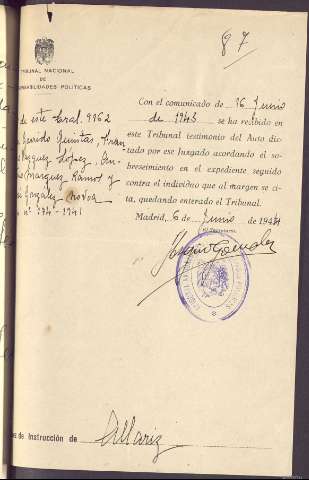 87
TRIBUNAL NACIONAL
DE
RESPONSABILIDADES POLÍTICAS
de este Tral. 9962
Quintas,
Vazquez Lopez,
Marquez Ramos y
Gonzalez
nº 174-1941
Con el comunicado de 16 Junio
de 1943 se ha recibido en
este Tribunal testimonio del Auto dic-
tado por ese Juzgado acordando el so-
breseimiento en el expediente seguido
contra el individuo que al margen se ci-
ta, quedando enterado el Tribunal.
Madrid, 6 de Junio de 1944
El Secretario,
Gonzalez
de Instrucción de Allariz